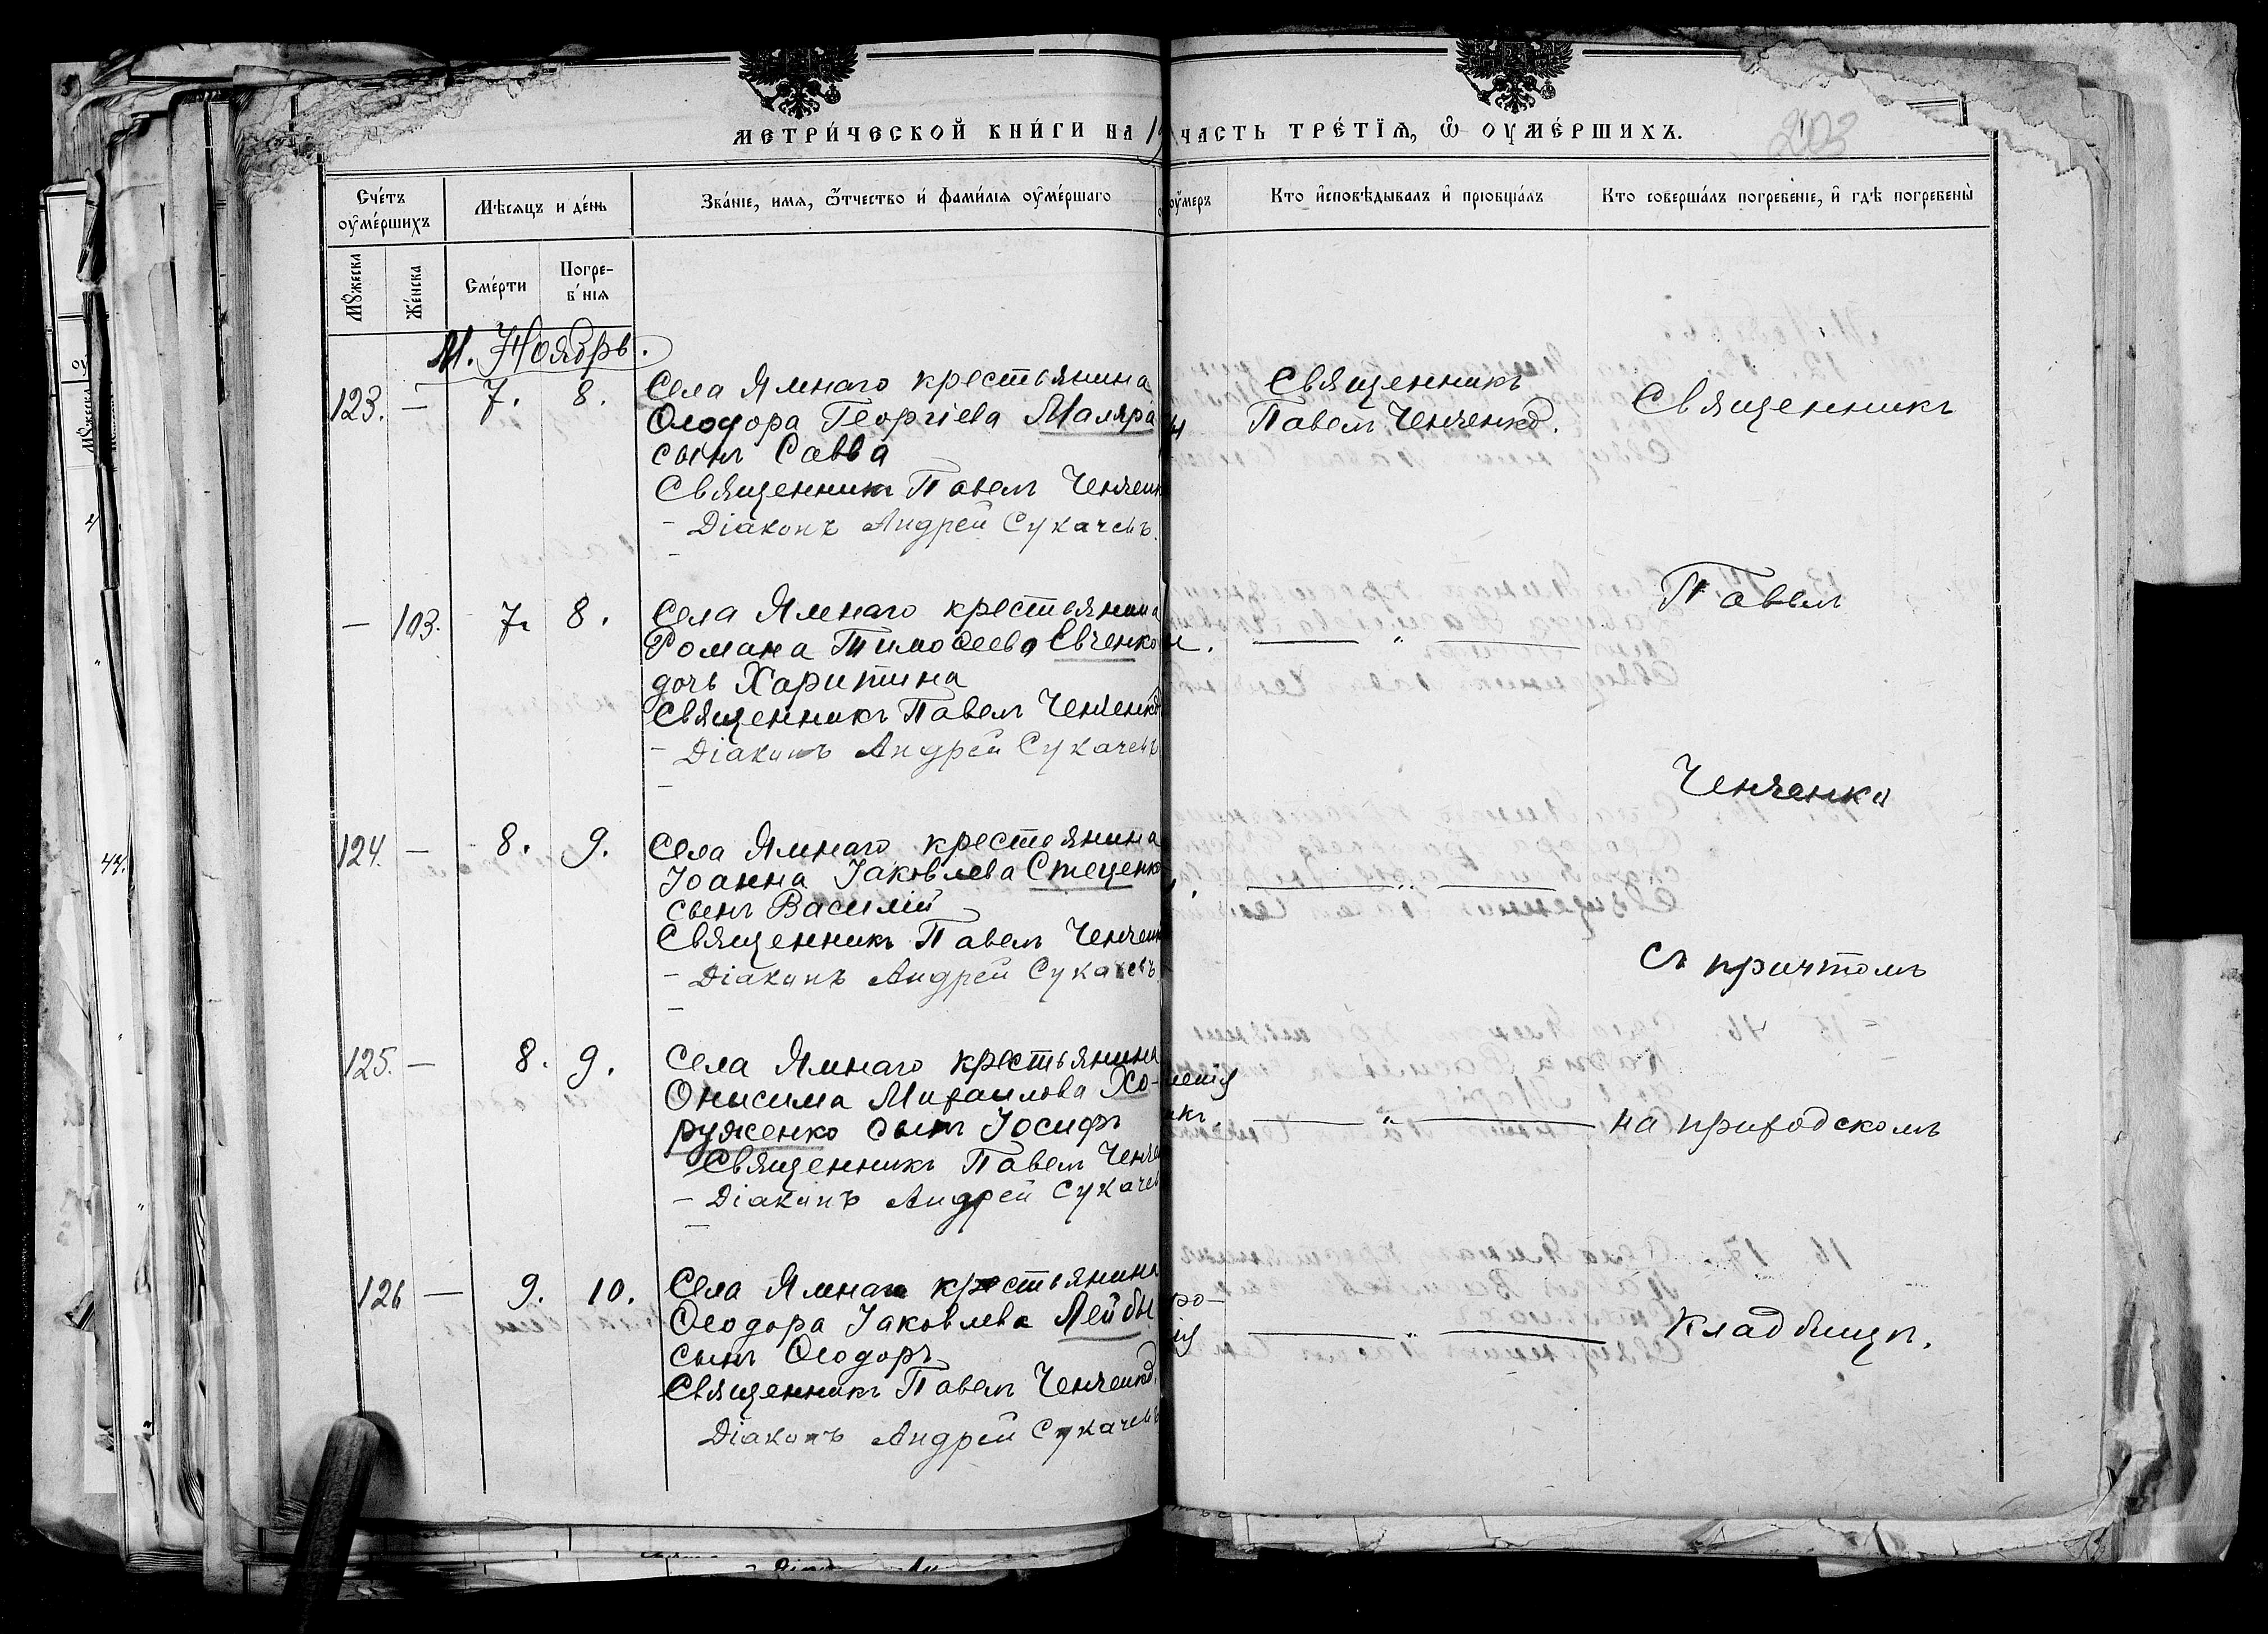 МЕТРИ́ЧЕСКОЙ КНИ́ГИ НА 19
ЧАСТЬ ТРЕ́ТІѦ, Ѡ ОУМЕ́РШИХЪ.
203
Сче́тъ оуме́ршихъ
Мѣсяцъ и де́нь
Зва́ніе, имя, ѿтчество и́ фами́лія оуме́ршаго
оумеръ
Кто и́сповѣдывалъ и́ пріобща́лъ
Кто соверша́лъ погребе́ніе, и́ гдѣ погребены̀
Мꙋжеска
Же́нска
Сме́рти
Погре-
б́нія
М. Ноябрь.
123. — 7. 8. Села Ямнаго крестьянина
Ѳеодора Георгіева Маляра
сынъ Савва
Священникъ Павелъ Ченчен
Діаконъ Андрей Сукачевъ.
Священникъ
Павелъ Ченченко.
Священникъ
— 103. 7. 8. Села Ямнаго крестьянина
Романа Тимоѳеева Євченко
дочь Харитина
Священникъ Павелъ Ченченко
Діаконъ Андрей Сукачевъ
— " —
Павелъ
Ченченко
124. — 8. 9. Села Ямнаго крестьянина
Іоанна Іаковлева Стеценко
сынъ Василій
Священникъ Павелъ Ченчен
Діаконъ Андрей Сукачевъ
— " —
съ причтомъ
125. — 8. 9. Села Ямнаго крестьянина
Онисима Михаилова Хо-
руженко сынъ Іосифъ
Священникъ Павелъ Ченче
Діаконъ Андрей Сукачев
— " —
на приходскомъ
126 — 9. 10. Села Ямнаго крестьянина
Ѳеодора Іаковлева Лейбы
сынъ Ѳеодоръ
Священникъ Павелъ Ченченко.
Діаконъ Андрей Сукачевъ
— " —
кладбищѣ.